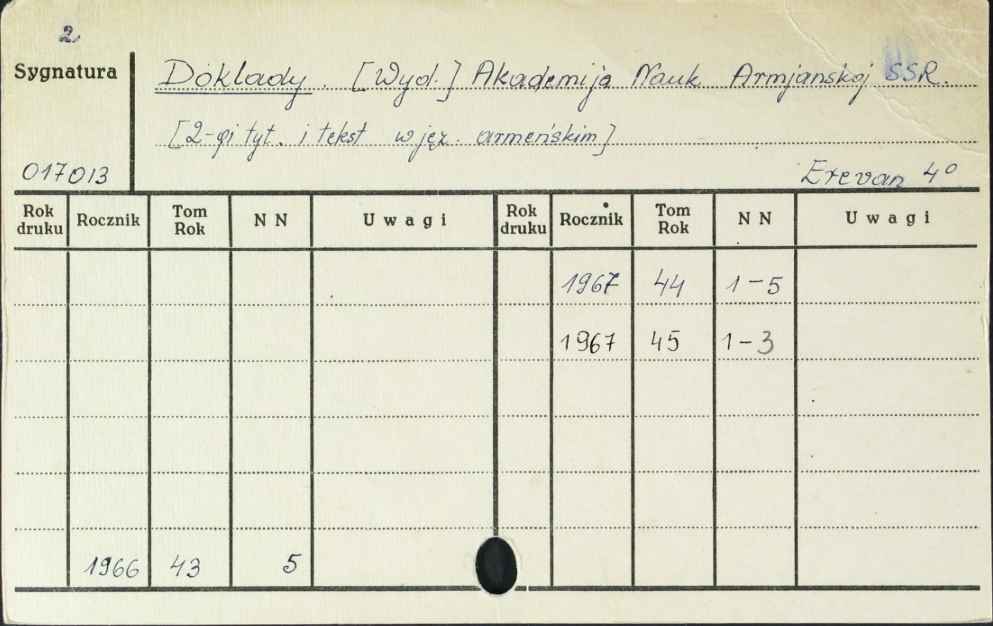 2
Sygnatura
Doklady. [Wyd.] Akademija Nauk Armjanskoj SSR.
[2-gi tyt. i tekst w jęz. armeńskim]
017013
Erevan 4°
Rok druku Rocznik Tom Rok NN Uwagi Rok druku Rocznik Tom Rok NN Uwagi
1967 44 1-5
1967 45 1-3
1966 43 5